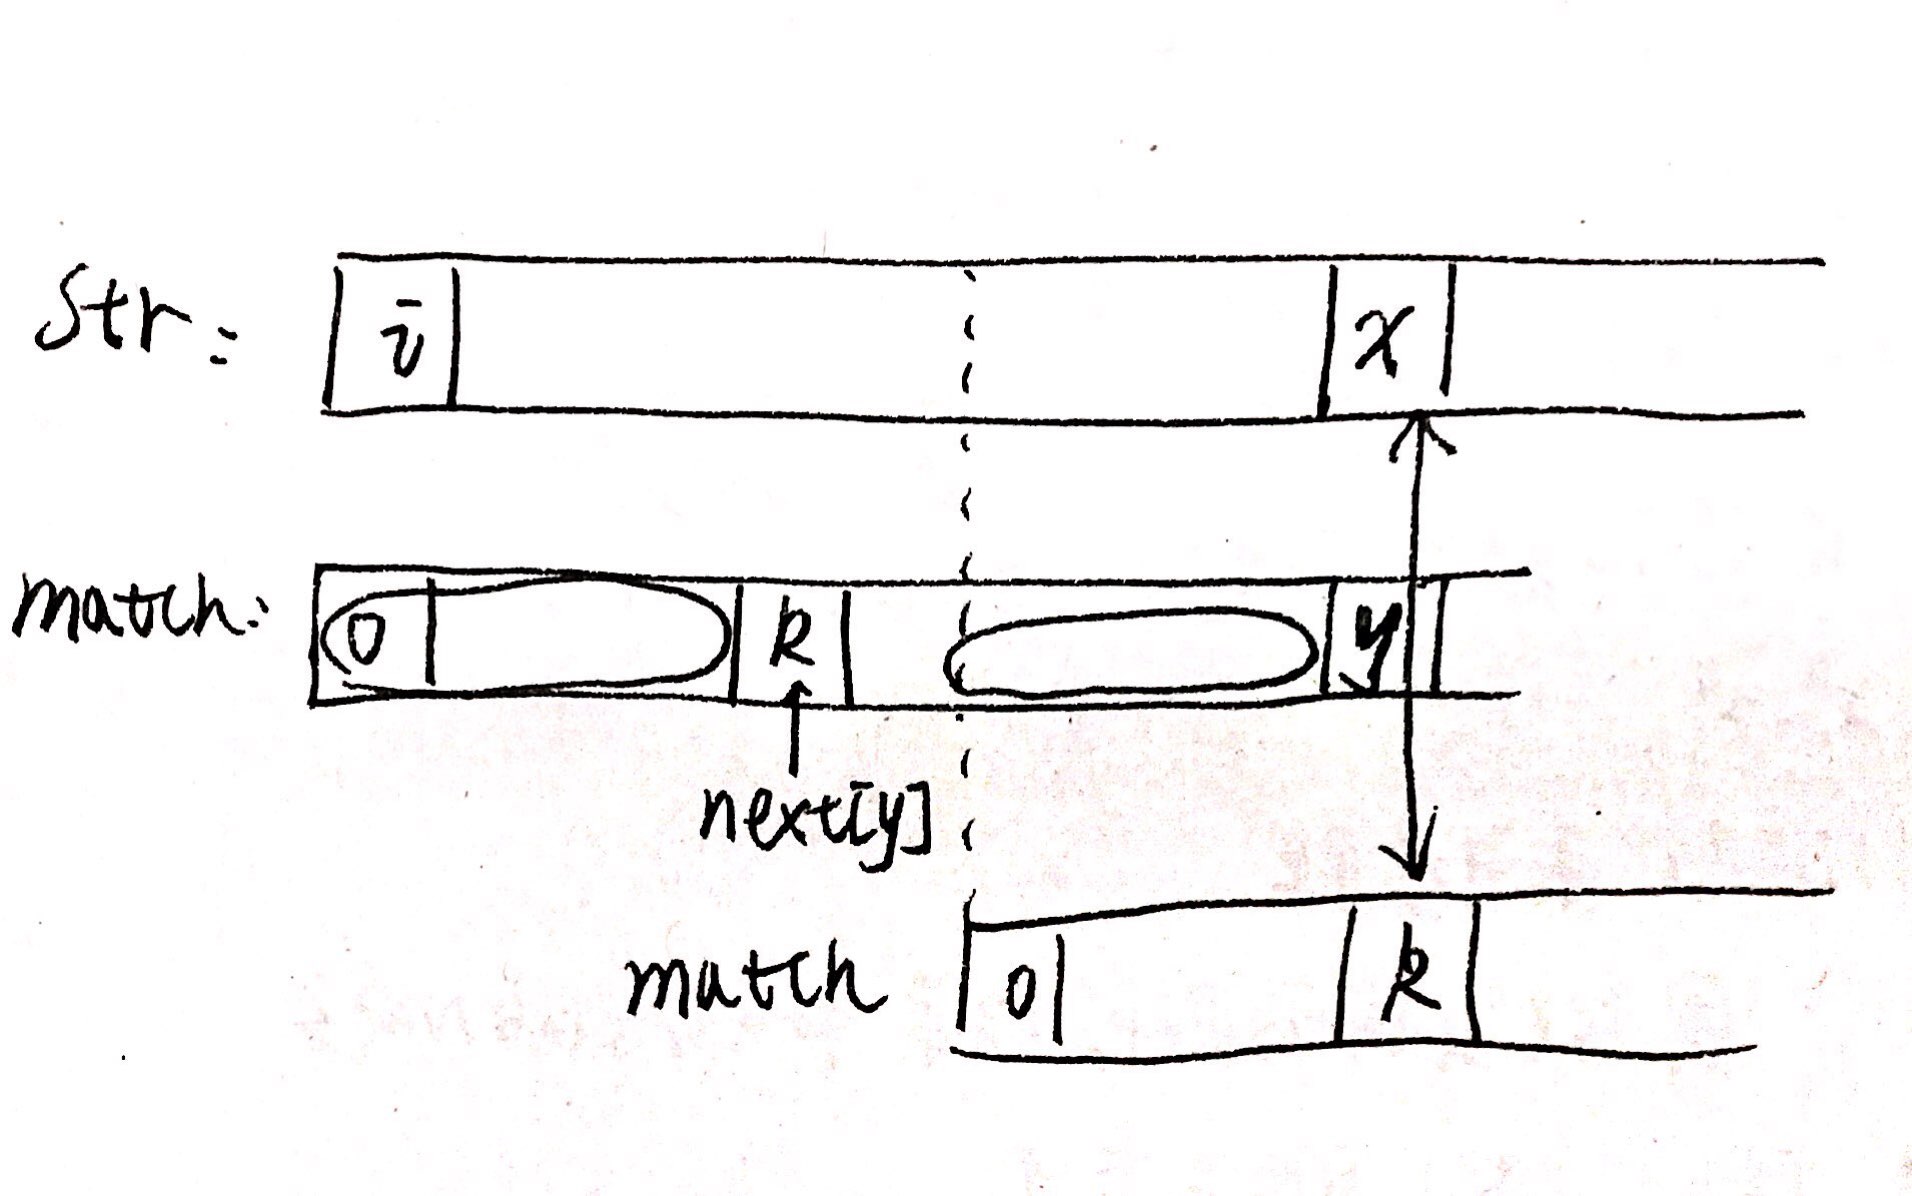 Str: i x
match: 0 k y
next[y]
match 0 k